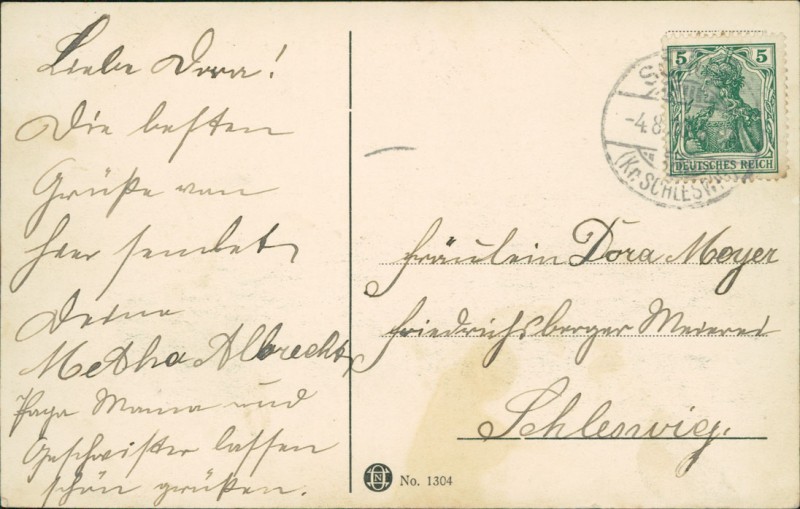 Liebe Dora!
Die besten
Grüße von
hier sendet
Deine
Metha Albrecht
Papa Mama und
Geschwister lassen
schön grüßen.
5 5
DEUTSCHES REICH
-4.8
(Kr. SCHLESW
Fräulein Dora Meyer
Friedrichsberger Meierei
Schleswig.
No. 1304